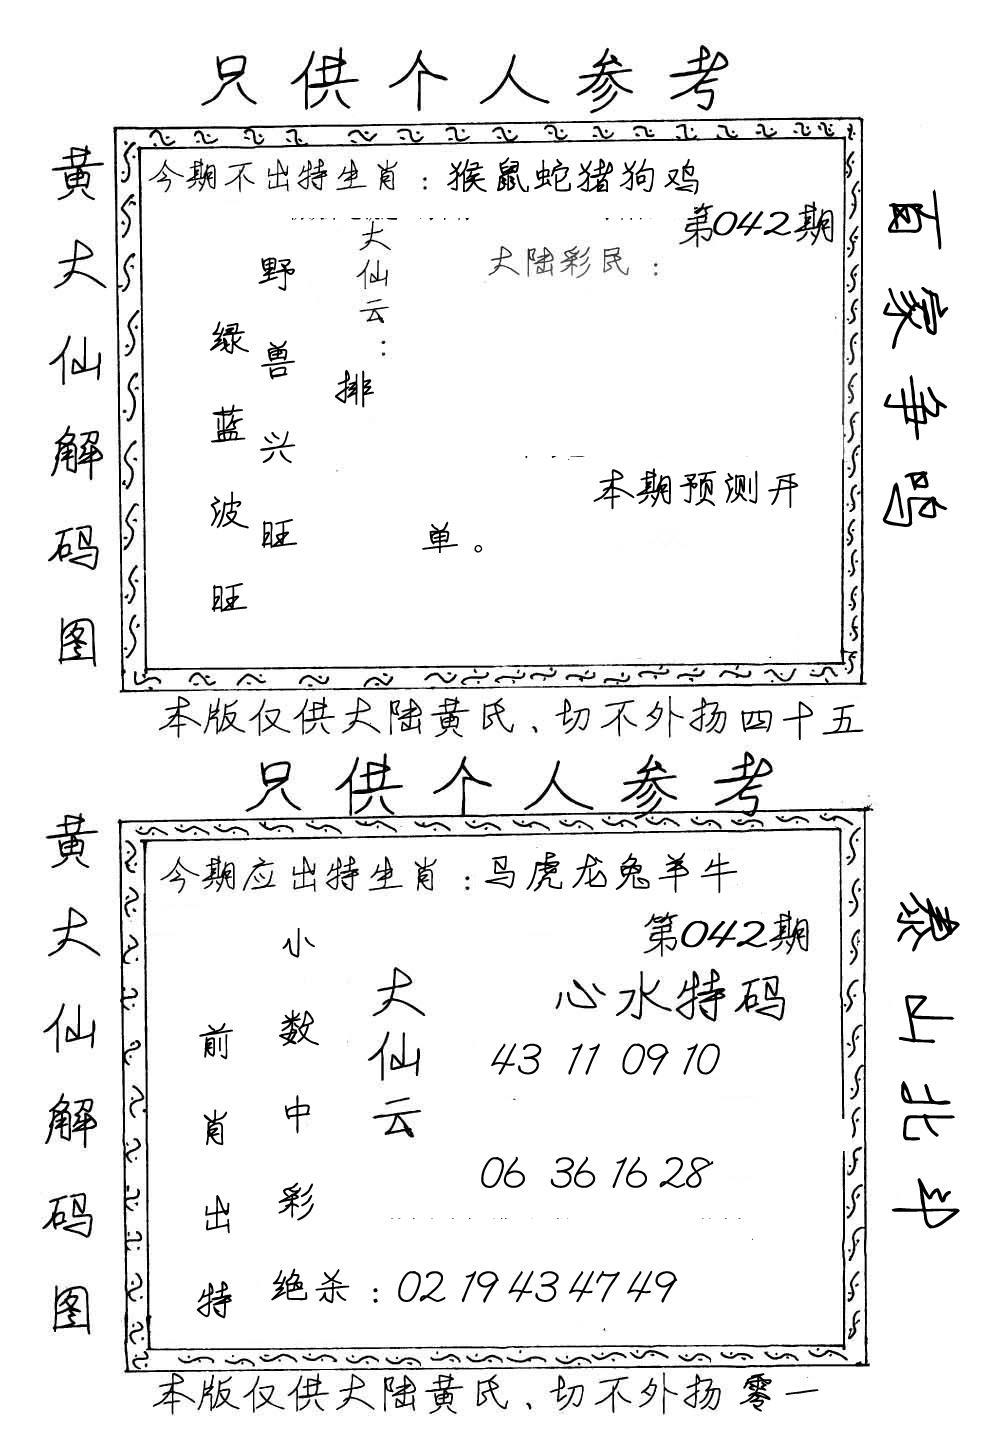 只供个人参考
黄大仙解码图
今期不出特生肖：猴鼠蛇猪狗鸡
第042期
大仙云：
大陆彩民：
野兽兴旺
绿蓝波旺
排
单。
本期预测开
百家争鸣
本版仅供大陆黄氏、切不外扬四十五
只供个人参考
黄大仙解码图
今期应出特生肖：马虎龙兔羊牛
第042期
小数中彩
前肖出特
大仙云
心水特码
43 11 09 10
06 36 16 28
绝杀：02 19 43 47 49
泰山北斗
本版仅供大陆黄氏、切不外扬零一